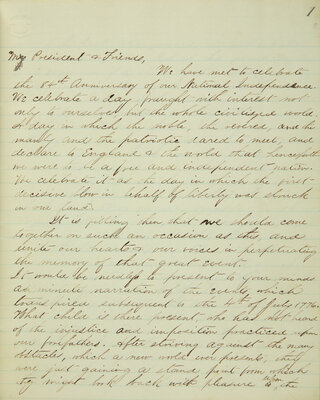 1
Mr President & Friends,
We have met to celebrate
the 84th Anniversary of our National Independence.
We celebrate a day fraught with interest not
only to ourselves, but the whole civilized world.
A day in which the noble, the and the
manly and the patriotic dared to meet, and
declare to England & the world that henceforth
we were is a free and independent nation.
We celebrate it as the day in which the first
decisive blow in behalf of liberty was struck
in our land.
It is fitting then that we should come
together on such an occasion as this, and
unite our hearts & our voices in perpetuating
the memory of that great event.
It would be needless to present to your minds
a minute narration of the events, which
transpired subsequent to the 4th of July 1776.
What child is there present, who has not heard
of the injustice and imposition practiced upon
our forefathers. After striving against the many
obstacles, which a new world ever presents, they
were just gaining a stand point from which
they might look back with pleasure upon the